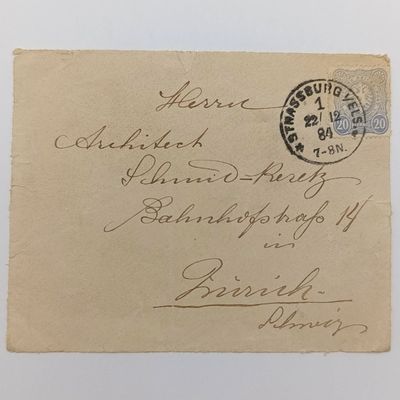 Herrn
Architect
Schmid-Keretz
Bahnhofstraß 14
in
Zürich
Schweiz
* STRASSBURG I/ELS. *
1
22/12
84
7-8N.
20 20